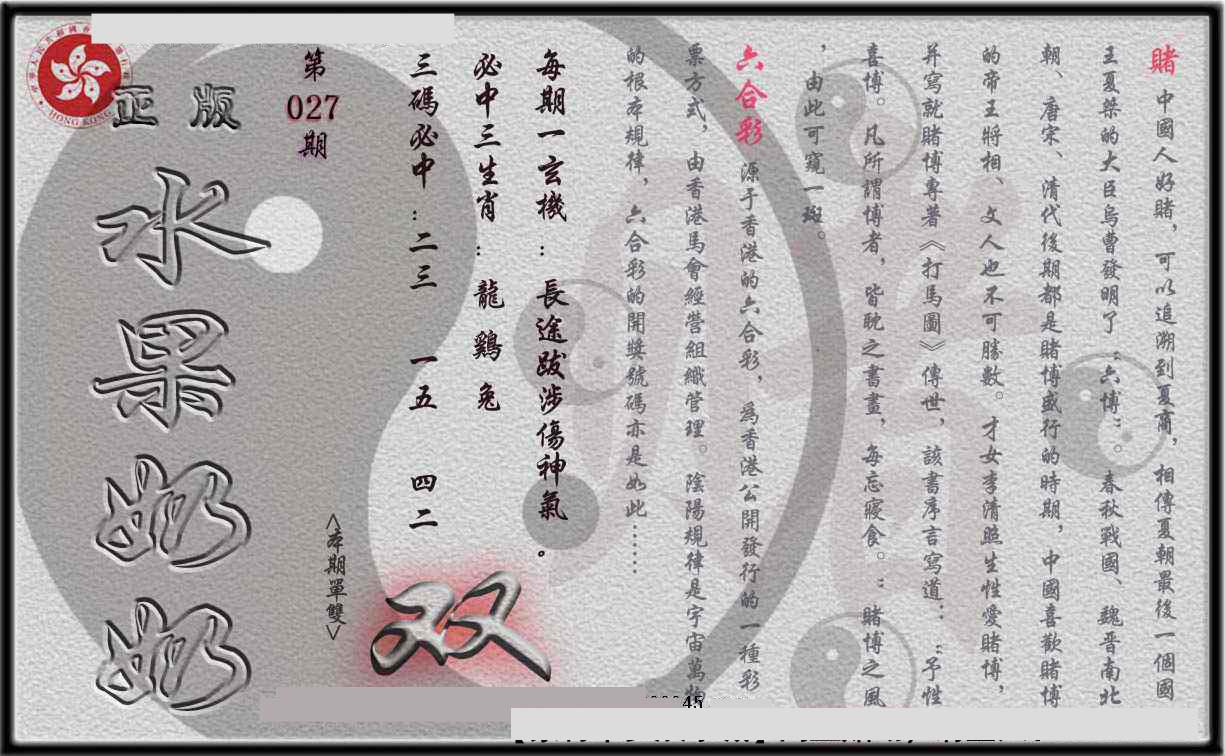 賭 中國人好賭，可以追溯到夏商，相傳夏朝最後一個國
王夏桀的大臣烏曹發明了“六博”。春秋戰國、魏晋南北
朝、唐宋、清代後期都是賭博盛行的時期，中國喜歡賭博
的帝王將相、文人也不可勝數。才女李清照生性愛賭博，
并寫就賭博專著《打馬圖》傳世，該書序言寫道：“予性
喜博。凡所謂博者，皆耽之書晝，每忘寢食。”賭博之風
，由此可窺一斑。
六合彩 源于香港的六合彩，爲香港公開發行的一種彩
票方式，由香港馬會經營組織管理。陰陽規律是宇宙萬物
的根本規律，六合彩的開獎號碼亦是如此……
每期一玄機：長途跋涉傷神氣。
必中三生肖：龍鷄兔
三碼必中：二三 一五 四二
双
<本期單雙>
第027期
正版
水果奶奶
HONG KONG